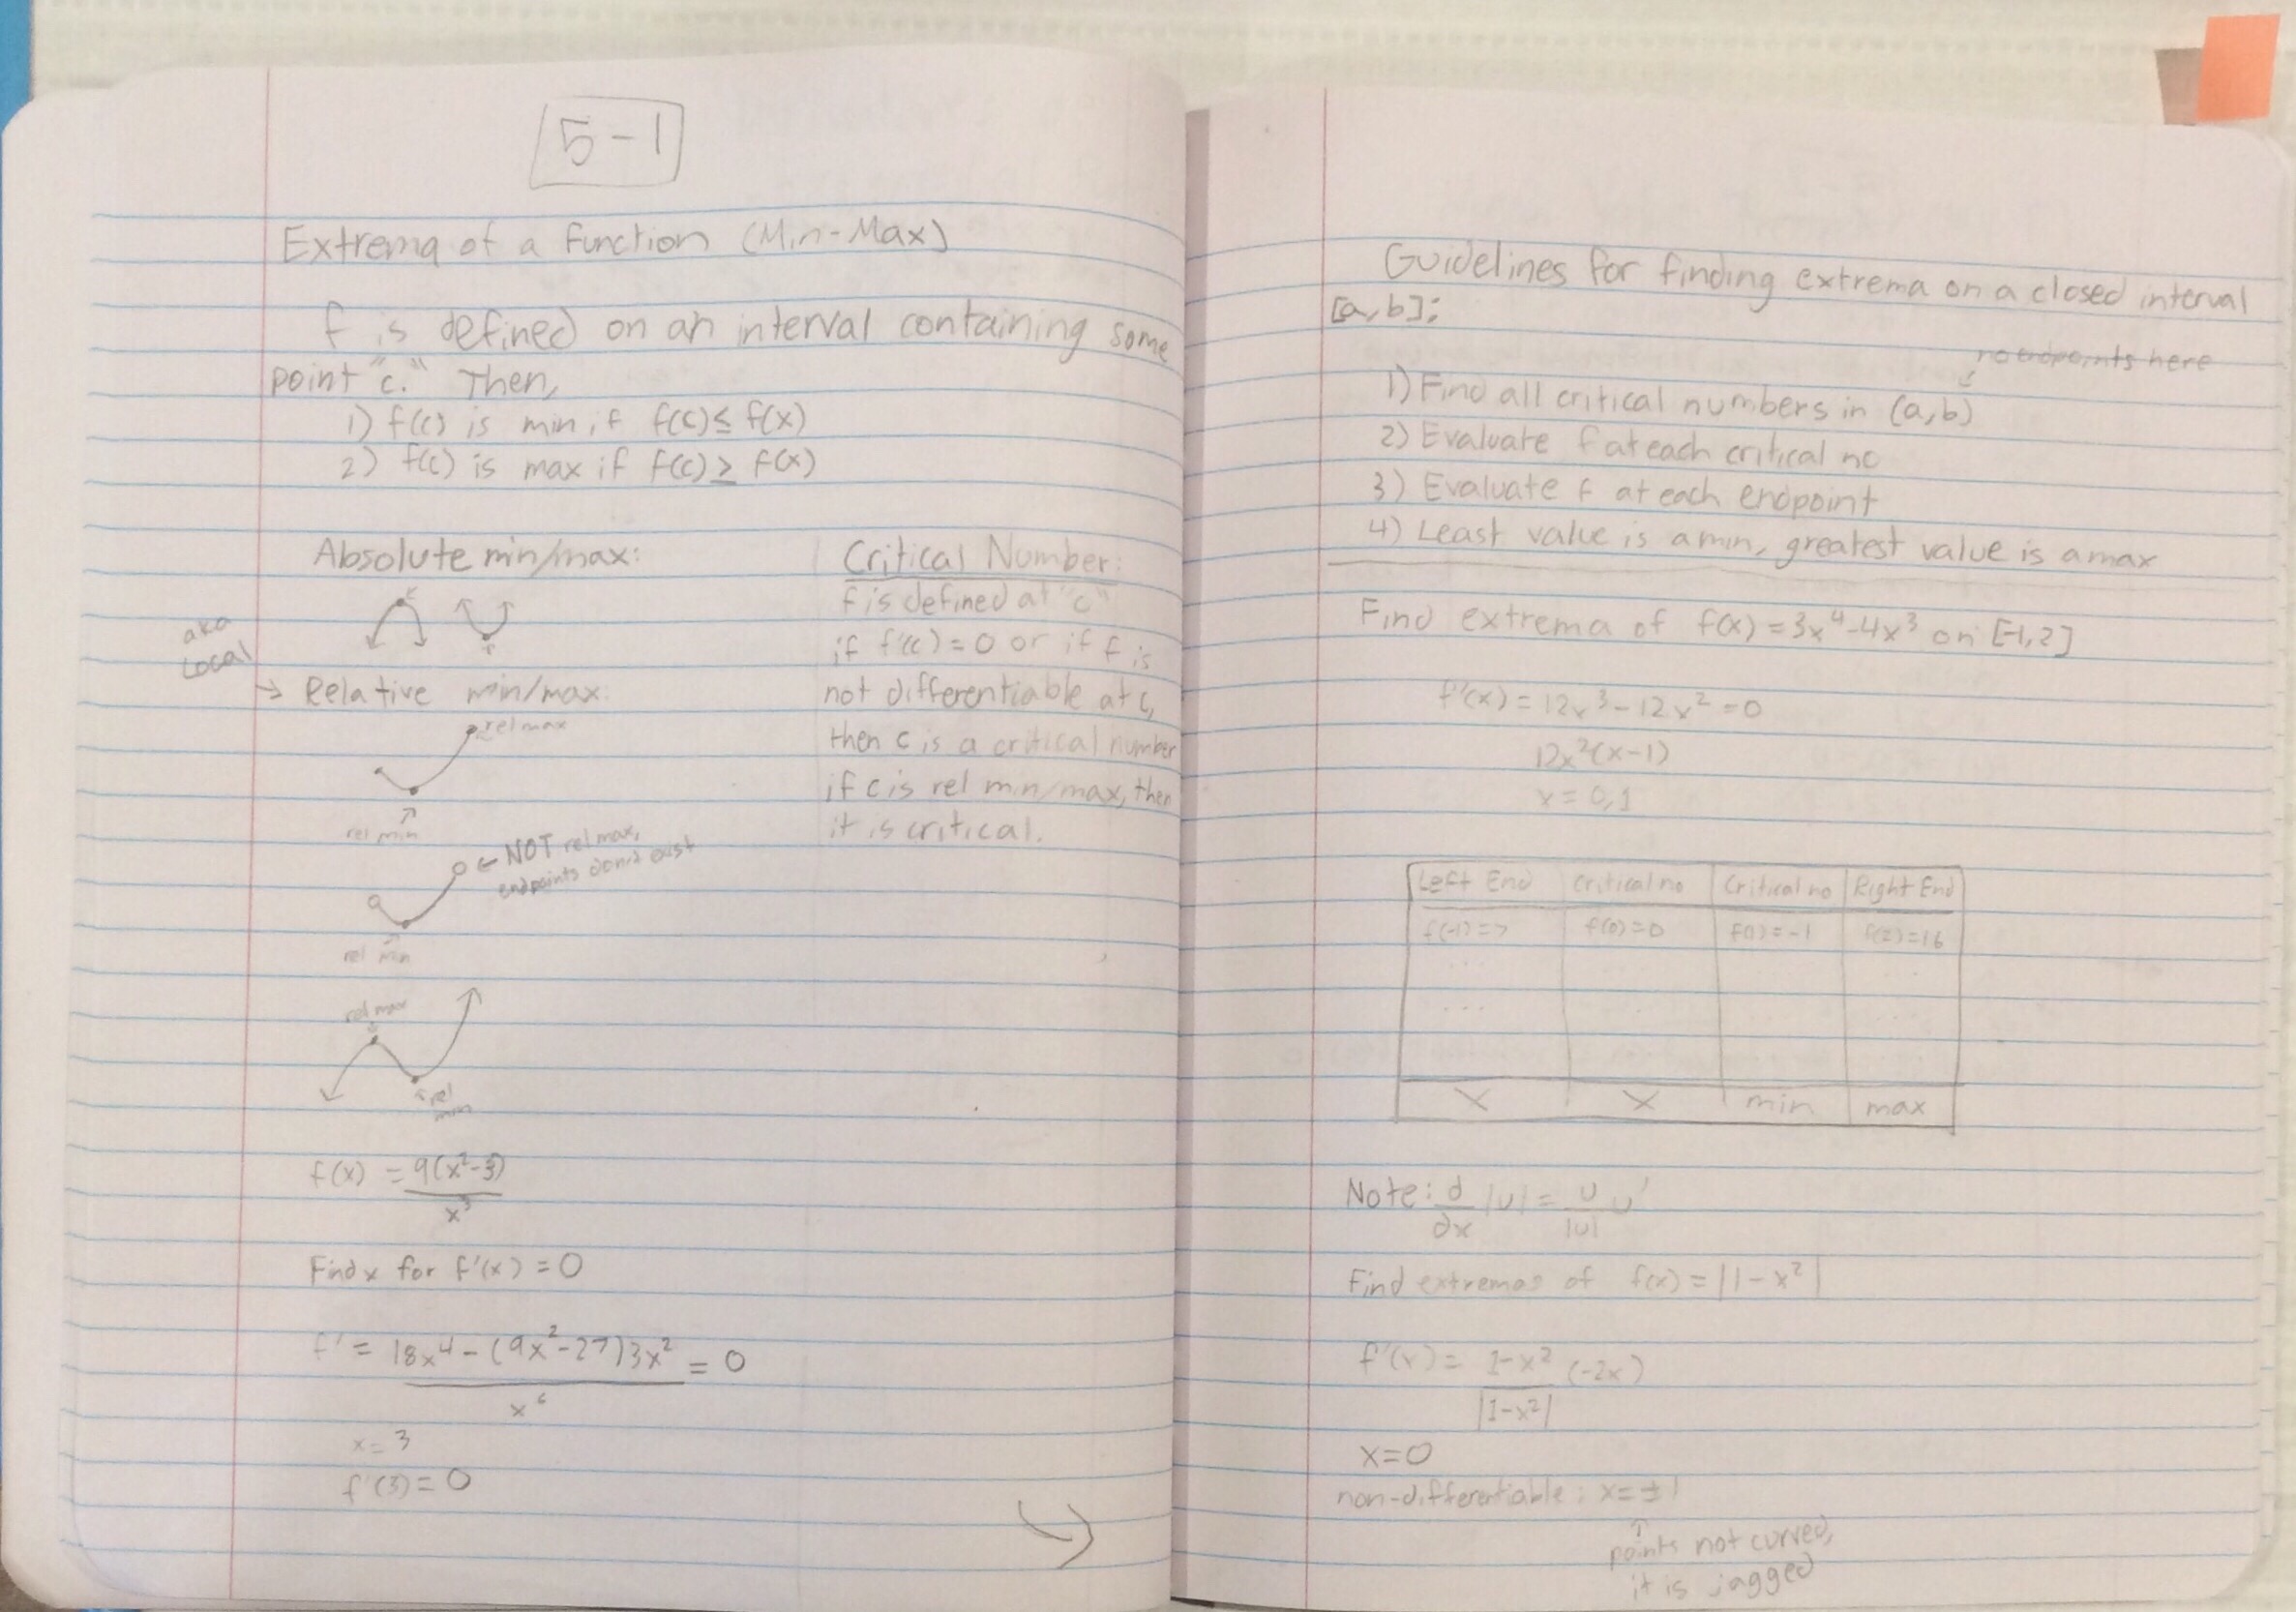 5-1
Extrema of a function (Min-Max)
f is defined on an interval containing some
point "c." Then,
1) f(c) is min if f(c) ≤ f(x)
2) f(c) is max if f(c) ≥ f(x)
Absolute min/max:
c
c
aka
Local
→ Relative min/max:
rel max
rel min
← NOT rel max,
endpoints don't exist
rel min
rel max
rel
min
Critical Number:
f is defined at "c"
if f'(c) = 0 or if f is
not differentiable at c,
then c is a critical number
if c is rel min/max, then
it is critical.
f(x) = 9(x²-3)
x³
Find x for f'(x) = 0
f' = 18x⁴ - (9x²-27)3x² = 0
x⁶
x = 3
f'(3) = 0
Guidelines for finding extrema on a closed interval
[a,b];
no endpoints here
1) Find all critical numbers in (a,b)
2) Evaluate f at each critical no
3) Evaluate f at each endpoint
4) Least value is a min, greatest value is a max
Find extrema of f(x) = 3x⁴-4x³ on [-1,2]
f'(x) = 12x³-12x² = 0
12x²(x-1)
x = 0,1
Left End Critical no Critical no Right End
f(-1)=7 f(0)=0 f(1)=-1 f(2)=16
... 
... 
X X min max
Note: d/dx |u| = u/|u| u'
Find extremas of f(x) = |1-x²|
f'(x) = 1-x² (-2x)
|1-x²|
x=0
non-differentiable: x=±1
points not curved,
it is jagged